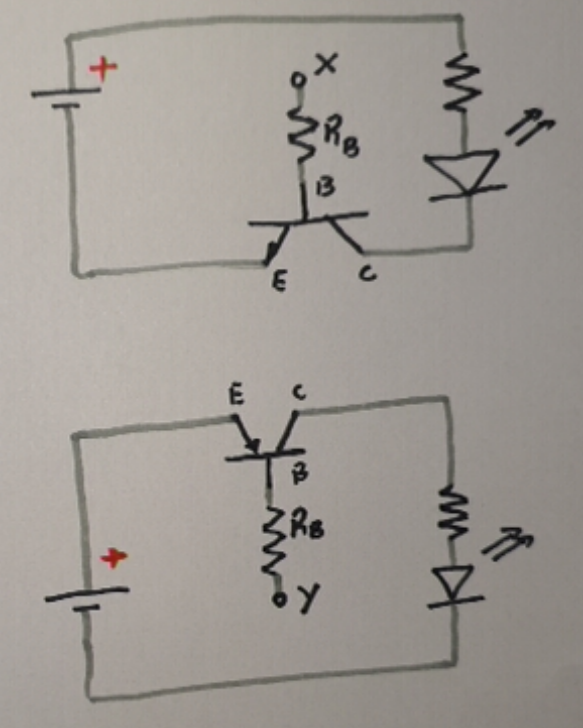 +
X
R_B
B
E
C
E
C
B
R_B
+
Y